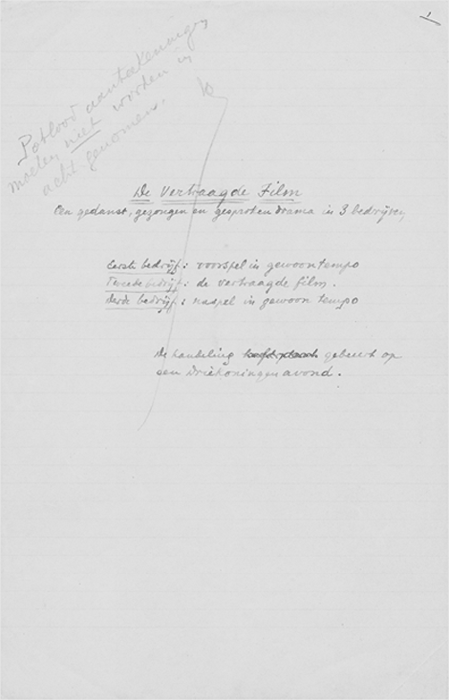 1
Potlood aanteekeningen
moeten niet worden in
acht genomen.
De Vertraagde Film
Een gedanst, gezongen en gesproken drama in 3 bedrijven
Eerste bedrijf: voorspel in gewoon tempo
Tweede bedrijf: de vertraagde film.
Derde bedrijf: naspel in gewoon tempo
De handeling heeft plaats gebeurt op
een Driekoningenavond.